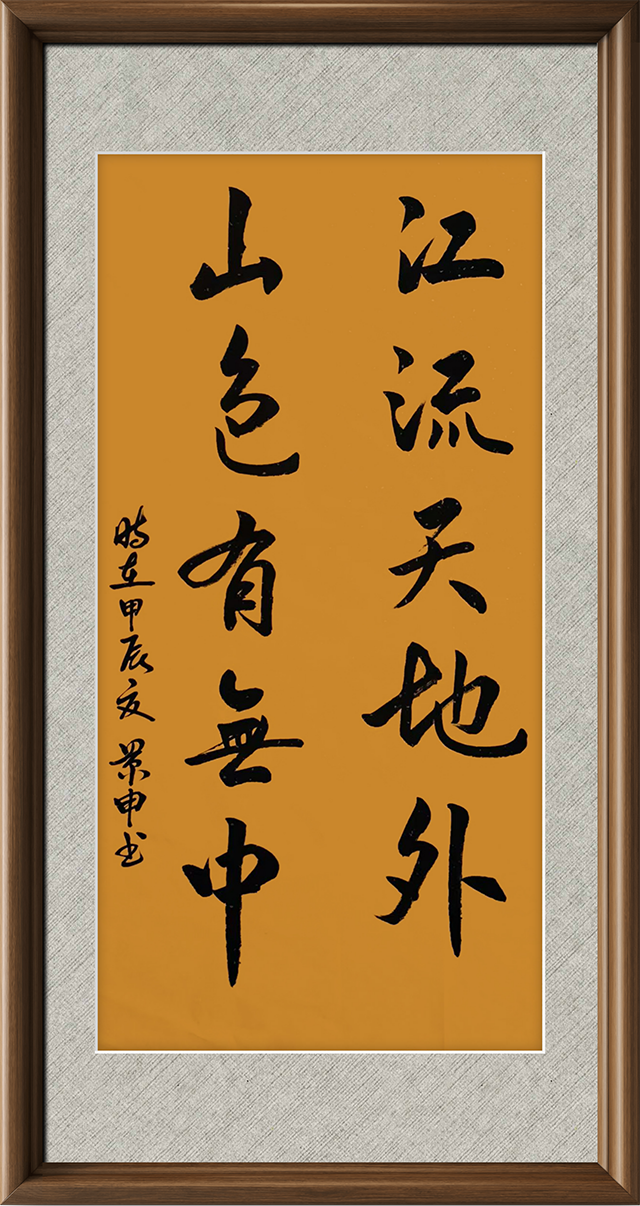 江流天地外
山色有無中
時在甲辰夏景申书